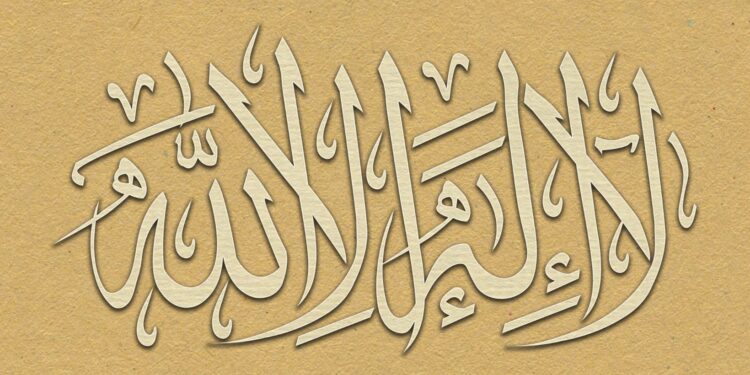 لَا إِلٰهَ إِلَّا اللهُ